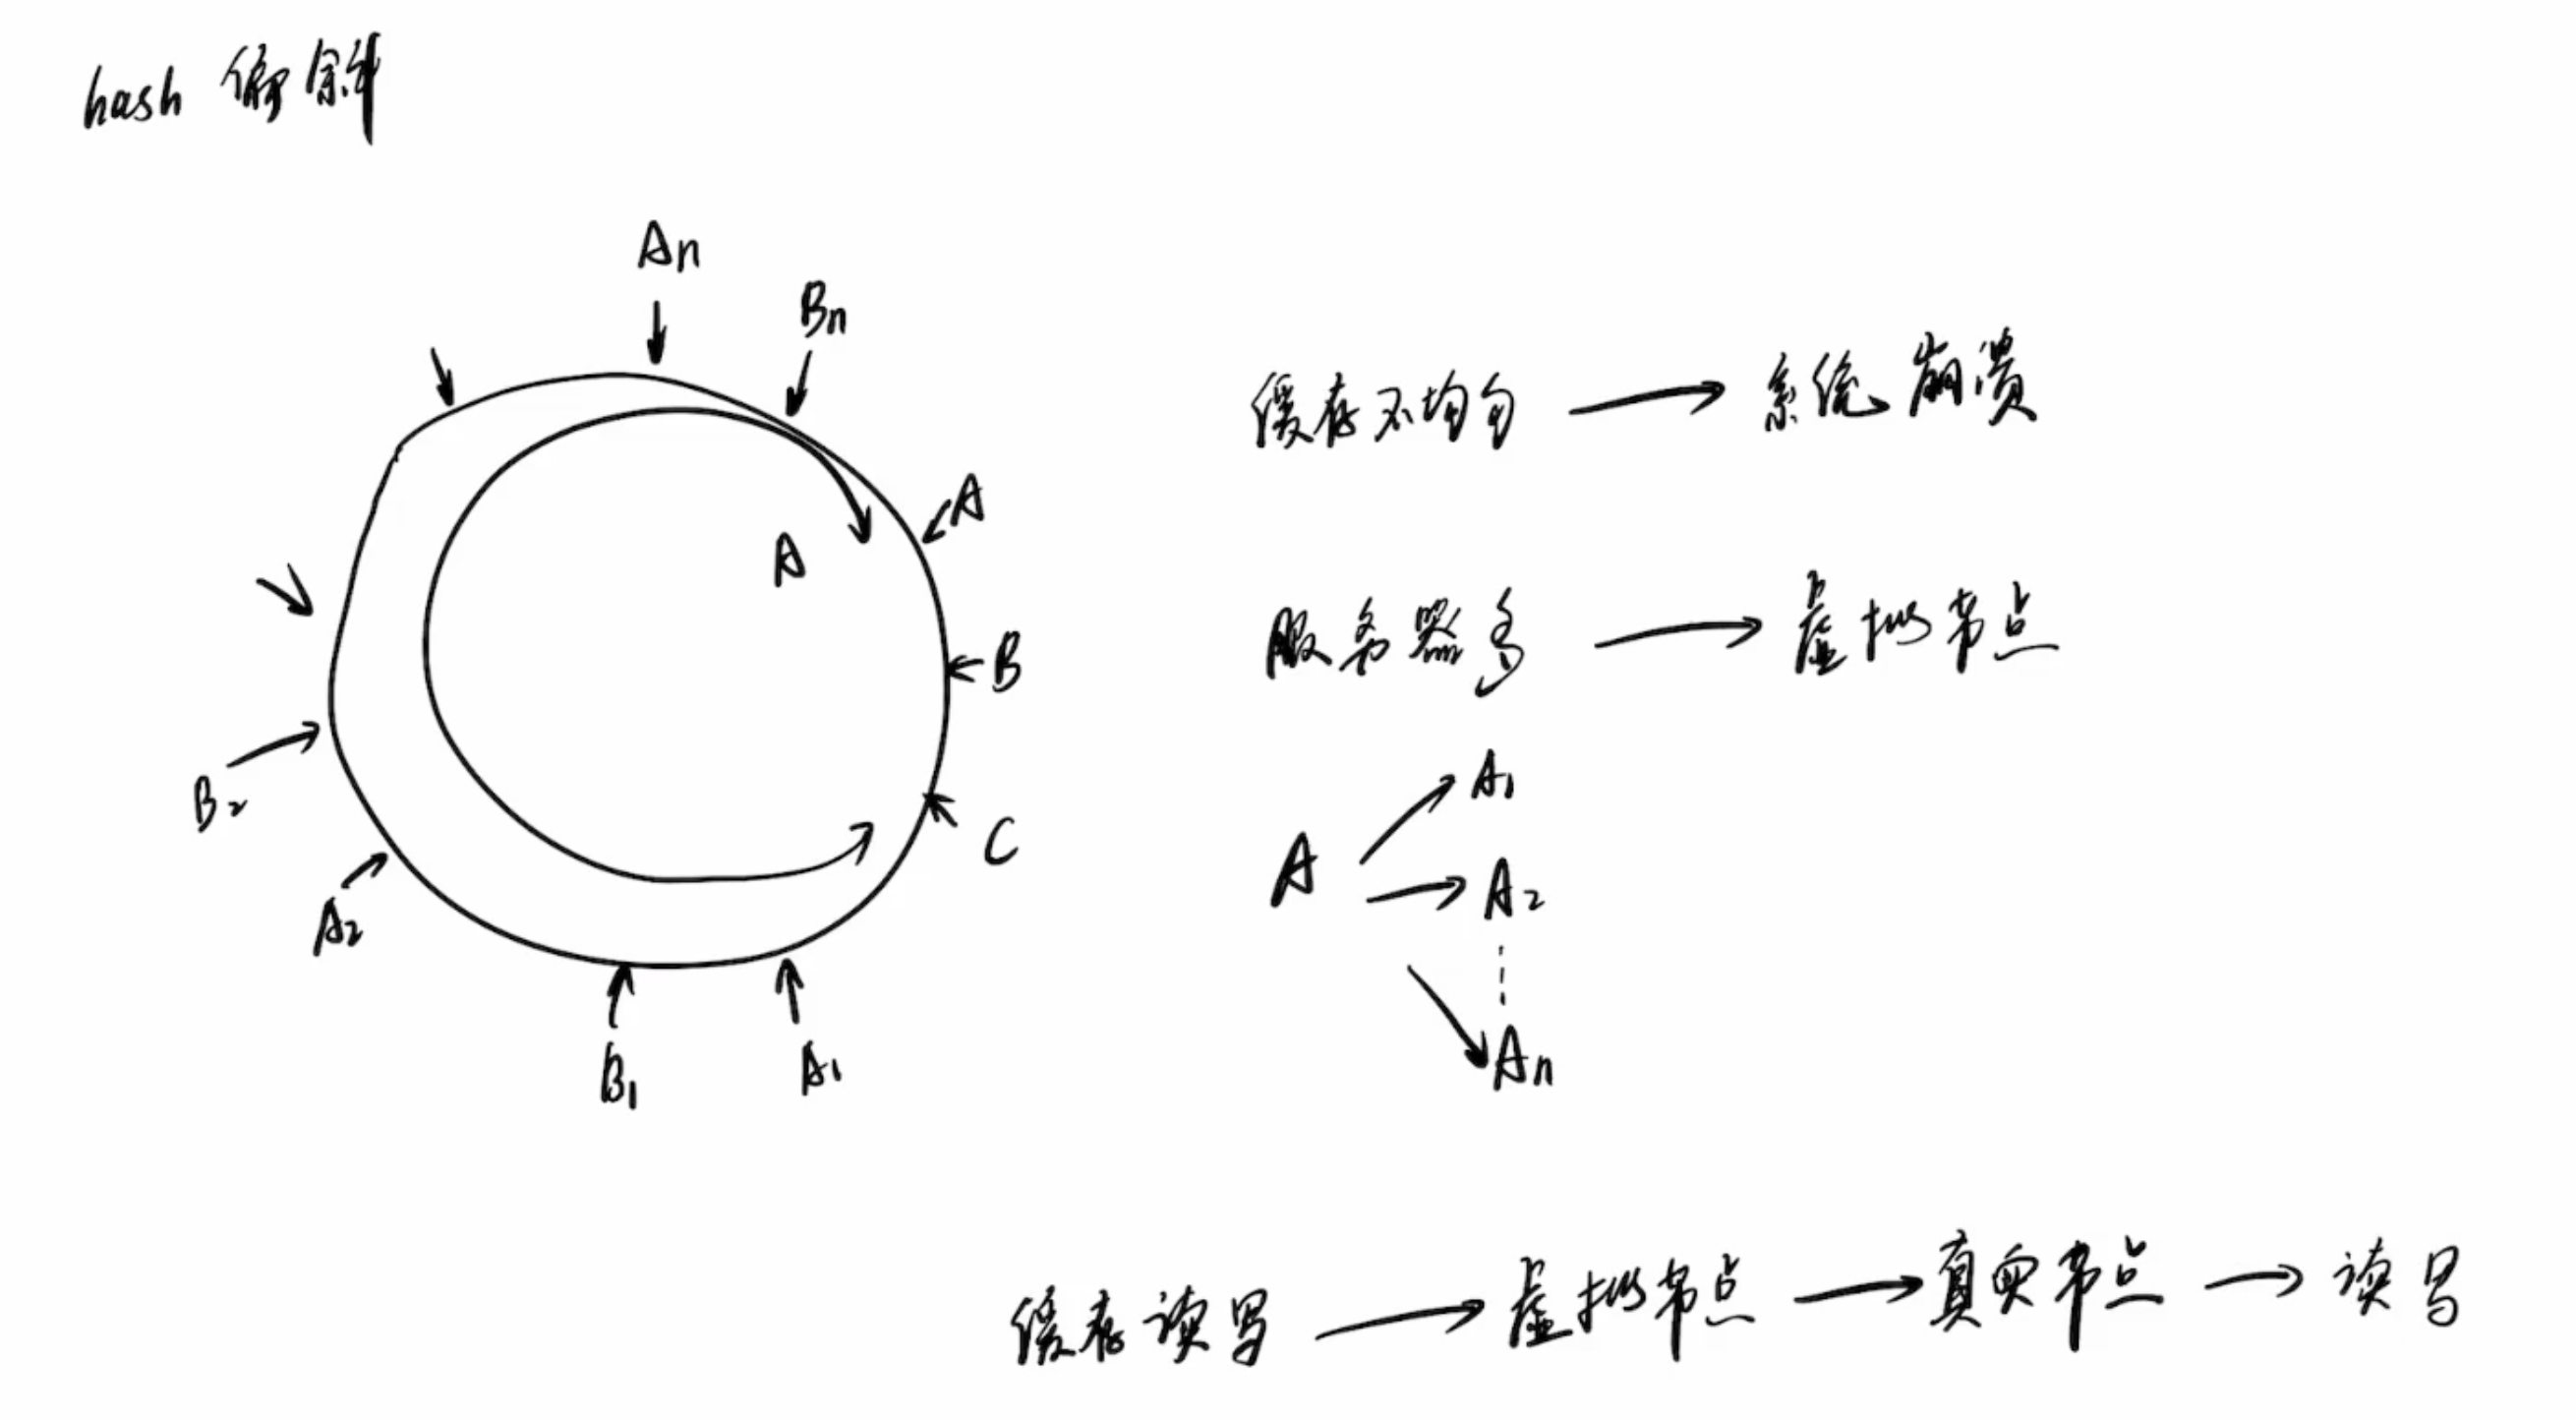 hash 偏斜
An
Bn
A
A
B
C
B2
A2
B1
A1
缓存不均匀 → 系统崩溃
服务器多 → 虚拟节点
A → A1
→ A2
→ An
缓存读写 → 虚拟节点 → 真实节点 → 读写